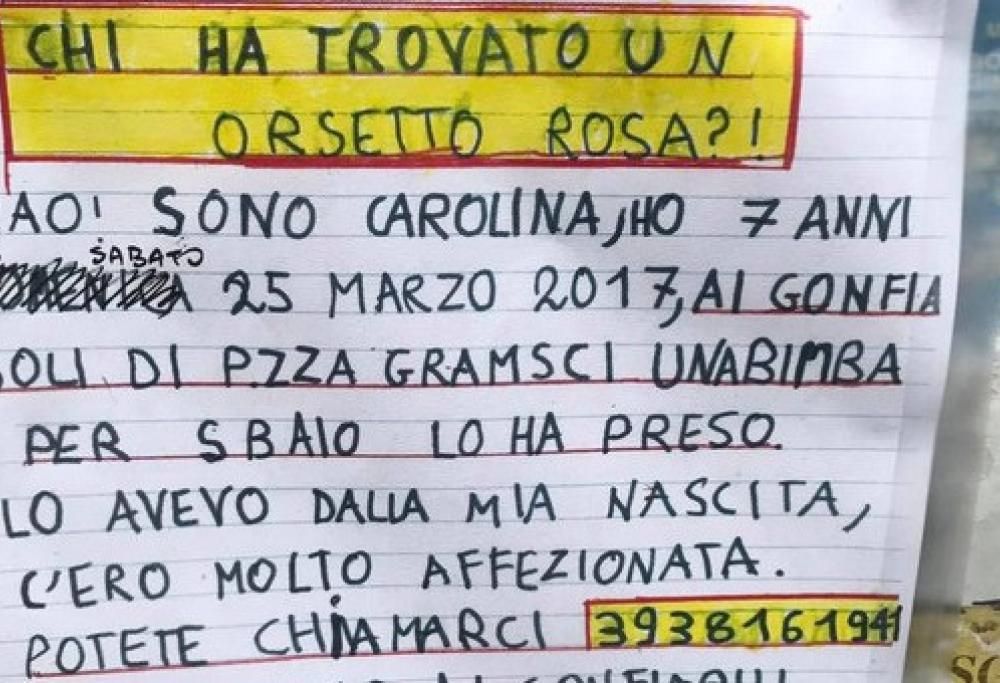 CHI HA TROVATO UN
ORSETTO ROSA?!
AO! SONO CAROLINA, HO 7 ANNI
SABATO
25 MARZO 2017, AI GONFIA
OLI DI P.ZZA GRAMSCI UNA BIMBA
PER SBAIO LO HA PRESO.
LO AVEVO DALLA MIA NASCITA,
C'ERO MOLTO AFFEZIONATA.
POTETE CHIAMARCI 3938161941